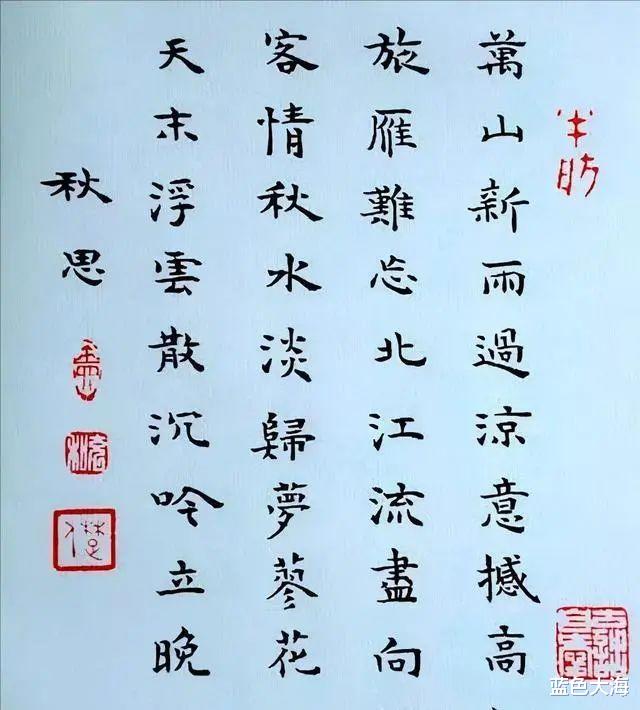 萬山新雨過涼意撼高
旅雁難忘北江流盡向
客情秋水淡歸夢蓼花
天末浮雲散沉吟立晚
秋思
蓝色大海